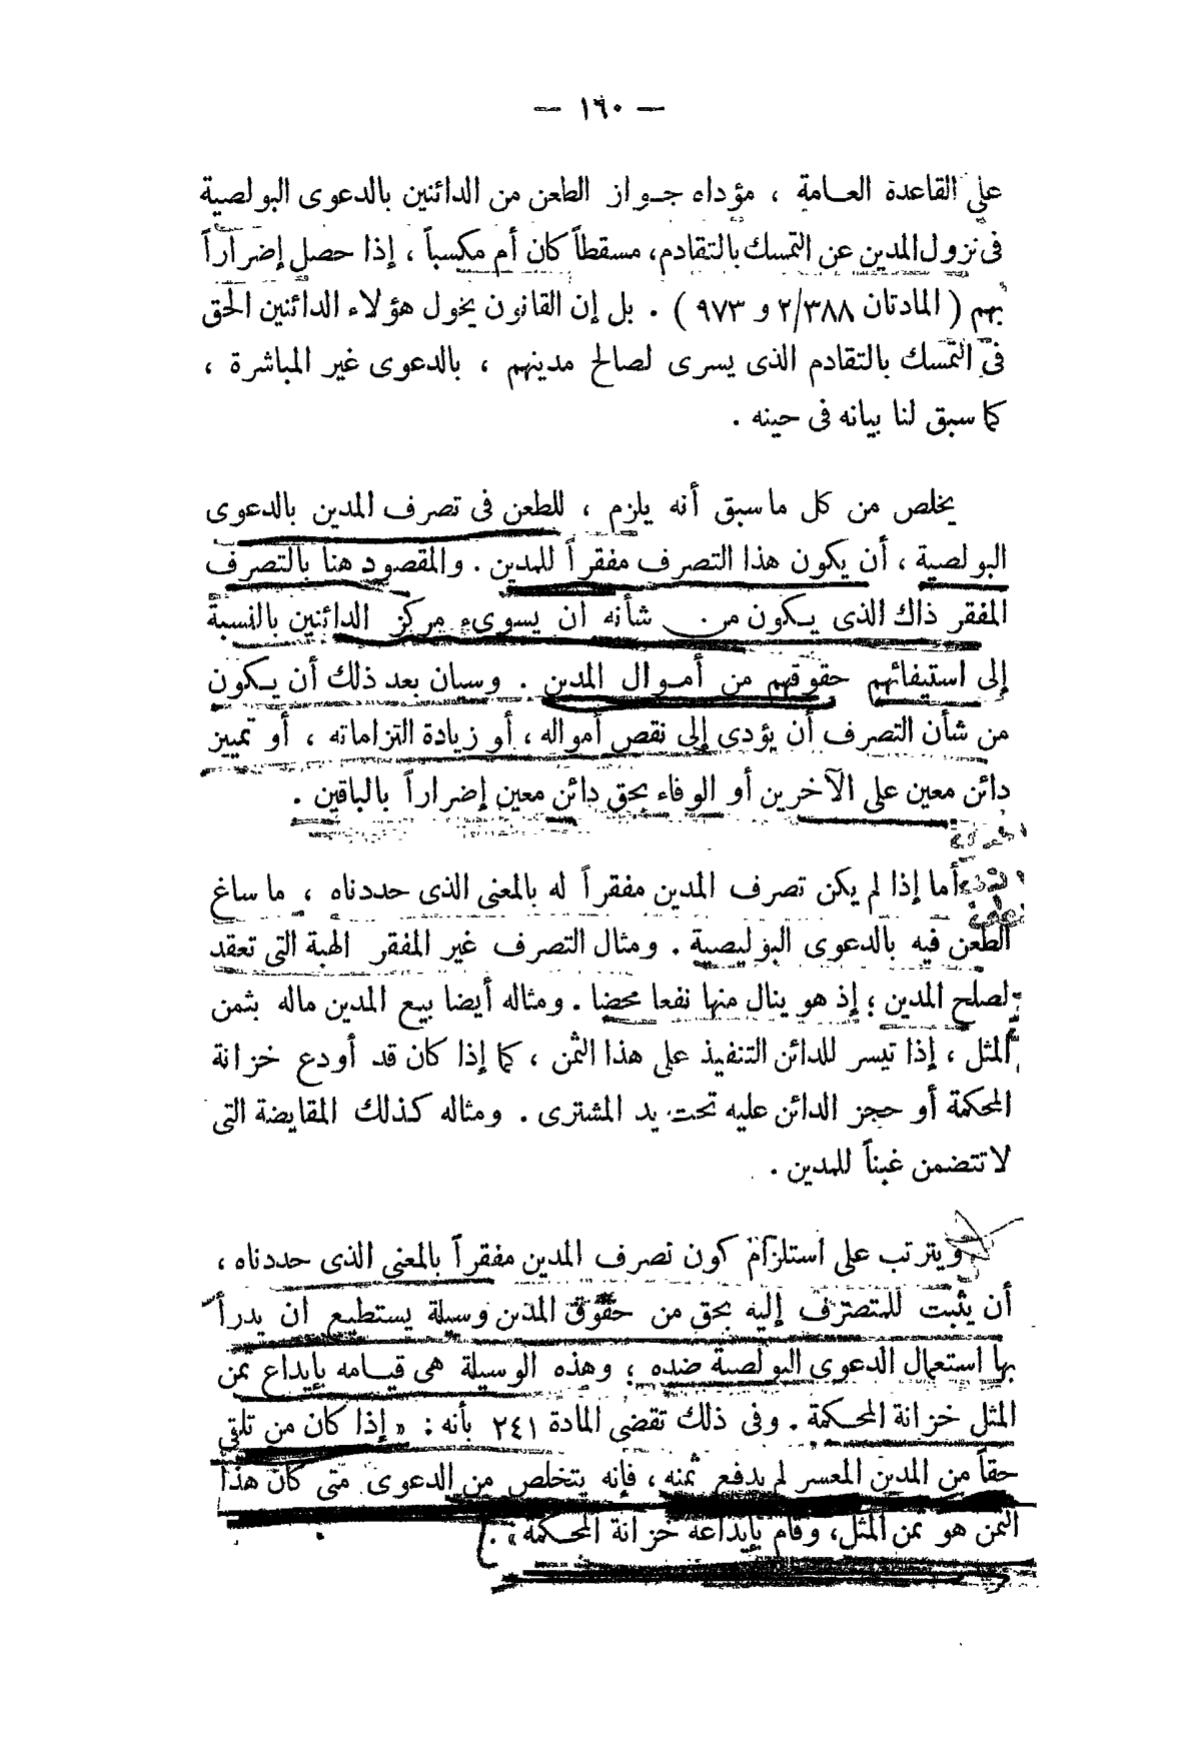 — ١٦٠ —
على القاعدة العامة ، مؤداه جواز الطعن من الدائنين بالدعوى البولصية
فى نزول المدين عن التمسك بالتقادم، مسقطاً كان أم مكسباً ، إذا حصل إضراراً
بهم ( المادتان ٢/٣٨٨ و ٩٧٣ ) . بل إن القانون يخول هؤلاء الدائنين الحق
فى التمسك بالتقادم الذى يسرى لصالح مدينهم ، بالدعوى غير المباشرة ،
كما سبق لنا بيانه فى حينه .
يخلص من كل ماسبق أنه يلزم ، للطعن فى تصرف المدين بالدعوى
البولصية ، أن يكون هذا التصرف مفقراً للمدين . والمقصود هنا بالتصرف
المفقر ذاك الذى يكون من شأنه ان يسوىء مركز الدائنين بالنسبة
إلى استيفائهم حقوقهم من أموال المدين . وسيان بعد ذلك أن يكون
من شأن التصرف أن يؤدى إلى نقص أمواله ، أو زيادة التزاماته ، أو تمييز
دائن معين على الآخرين أو الوفاء بحق دائن معين إضراراً بالباقين .
أما إذا لم يكن تصرف المدين مفقراً له بالمعنى الذى حددناه ، ما ساغ
الطعن فيه بالدعوى البوليصية . ومثال التصرف غير المفقر الهبة التى تعقد
لصلح المدين ؛ إذ هو ينال منها نفعا محضا . ومثاله أيضا بيع المدين ماله بثمن
المثل ، إذا تيسر للدائن التنفيذ على هذا الثمن ، كما إذا كان قد أودع خزانة
المحكمة أو حجز الدائن عليه تحت يد المشترى . ومثاله كذلك المقايضة التى
لا تتضمن غبناً للمدين .
ويترتب على استلزام كون تصرف المدين مفقراً بالمعنى الذى حددناه ،
أن يثبت للمتصرف إليه بحق من حقوق المدين وسيلة يستطيع ان يدرأ
بها استعمال الدعوى البولصية ضده ؛ وهذه الوسيلة هى قيامه بإيداع ثمن
المثل خزانة المحكمة . وفى ذلك تقضى المادة ٢٤١ بأنه : « إذا كان من تلقى
حقاً من المدين المعسر لم يدفع ثمنه ، فإنه يتخلص من الدعوى متى كان هذا
الثمن هو ثمن المثل، وقام بإيداعه خزانة المحكمة » .